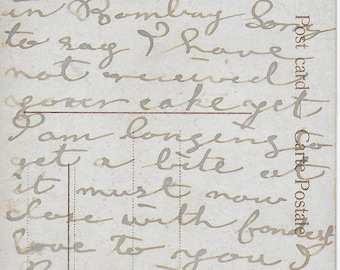 in Bombay Sorry
to say I have
not received
your cake yet
I am longing to
get a bite at
it must now
close with fondest
love to you I
Post card Carte Postale